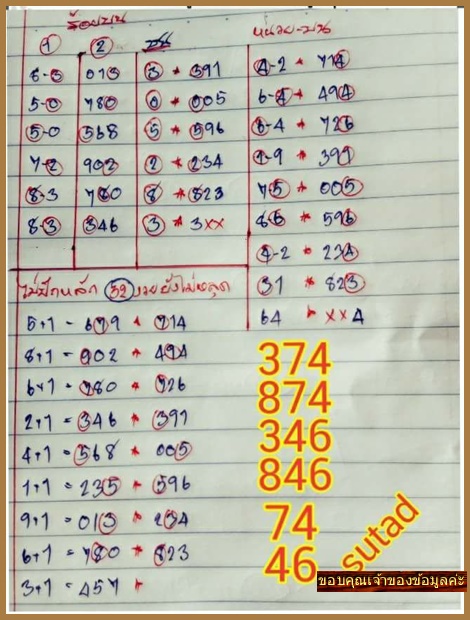 ร้อยบน
1 2 ชน
8-0 013 3 * 391
5-0 780 0 * 005
5-0 568 5 * 596
7-2 902 2 * 234
8-3 780 8 * 823
8-3 346 3 * 3xx
หน่วย-บน
4-2 * 714
6-4 * 494
6-4 * 726
1-9 * 391
75 * 005
86 * 596
4-2 * 234
31 * 823
64 * xx4
ไม่ปักหลัก 32 งวดยังไม่หลุด
5+1 = 679 * 714
8+1 = 902 * 494
6+1 = 780 * 726
2+1 = 346 * 391
4+1 = 568 * 005
1+1 = 235 * 596
9+1 = 013 * 234
6+1 = 780 * 823
3+1 = 457 *
374
874
346
846
74
46
sutad
ขอบคุณเจ้าของข้อมูลค่ะ